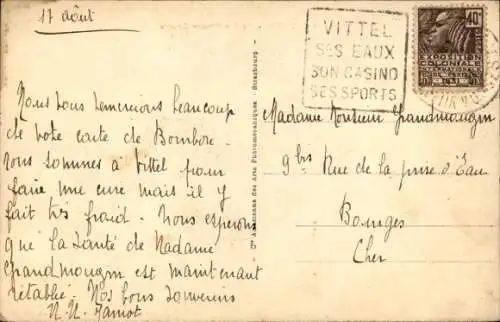 17 août
Nous vous remercions beaucoup
de votre carte de Bombon.
nous sommes à Vittel pour
faire une cure mais il y
fait très froid. Nous espérons
que la santé de Madame
Grandmougin est maintenant
rétablie. Nos bons souvenirs
Jamot
VITTEL
SES EAUX
SON CASINO
SES SPORTS
40c
EXPOSITION
COLONIALE
INTERNATIONALE
PARIS 1931
Madame Monsieur Grandmougin
9 bis Rue de la prise d'Eau
Bourges
Cher
Cie Alsacienne des Arts Photomécaniques - Strasbourg